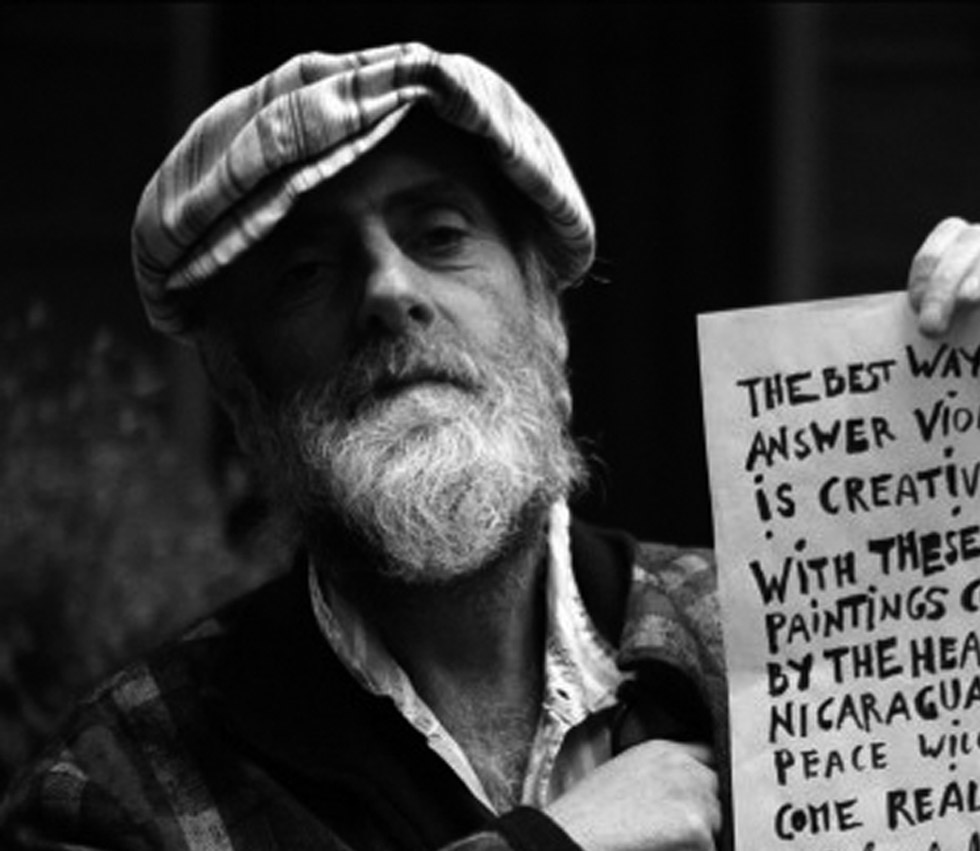 THE BEST WAY
ANSWER ViOL
iS CREATiV
WiTH THESE
PAiNTiNGS
BY THE HEA
NiCARAGUA
PEACE WiLL
COME REAL